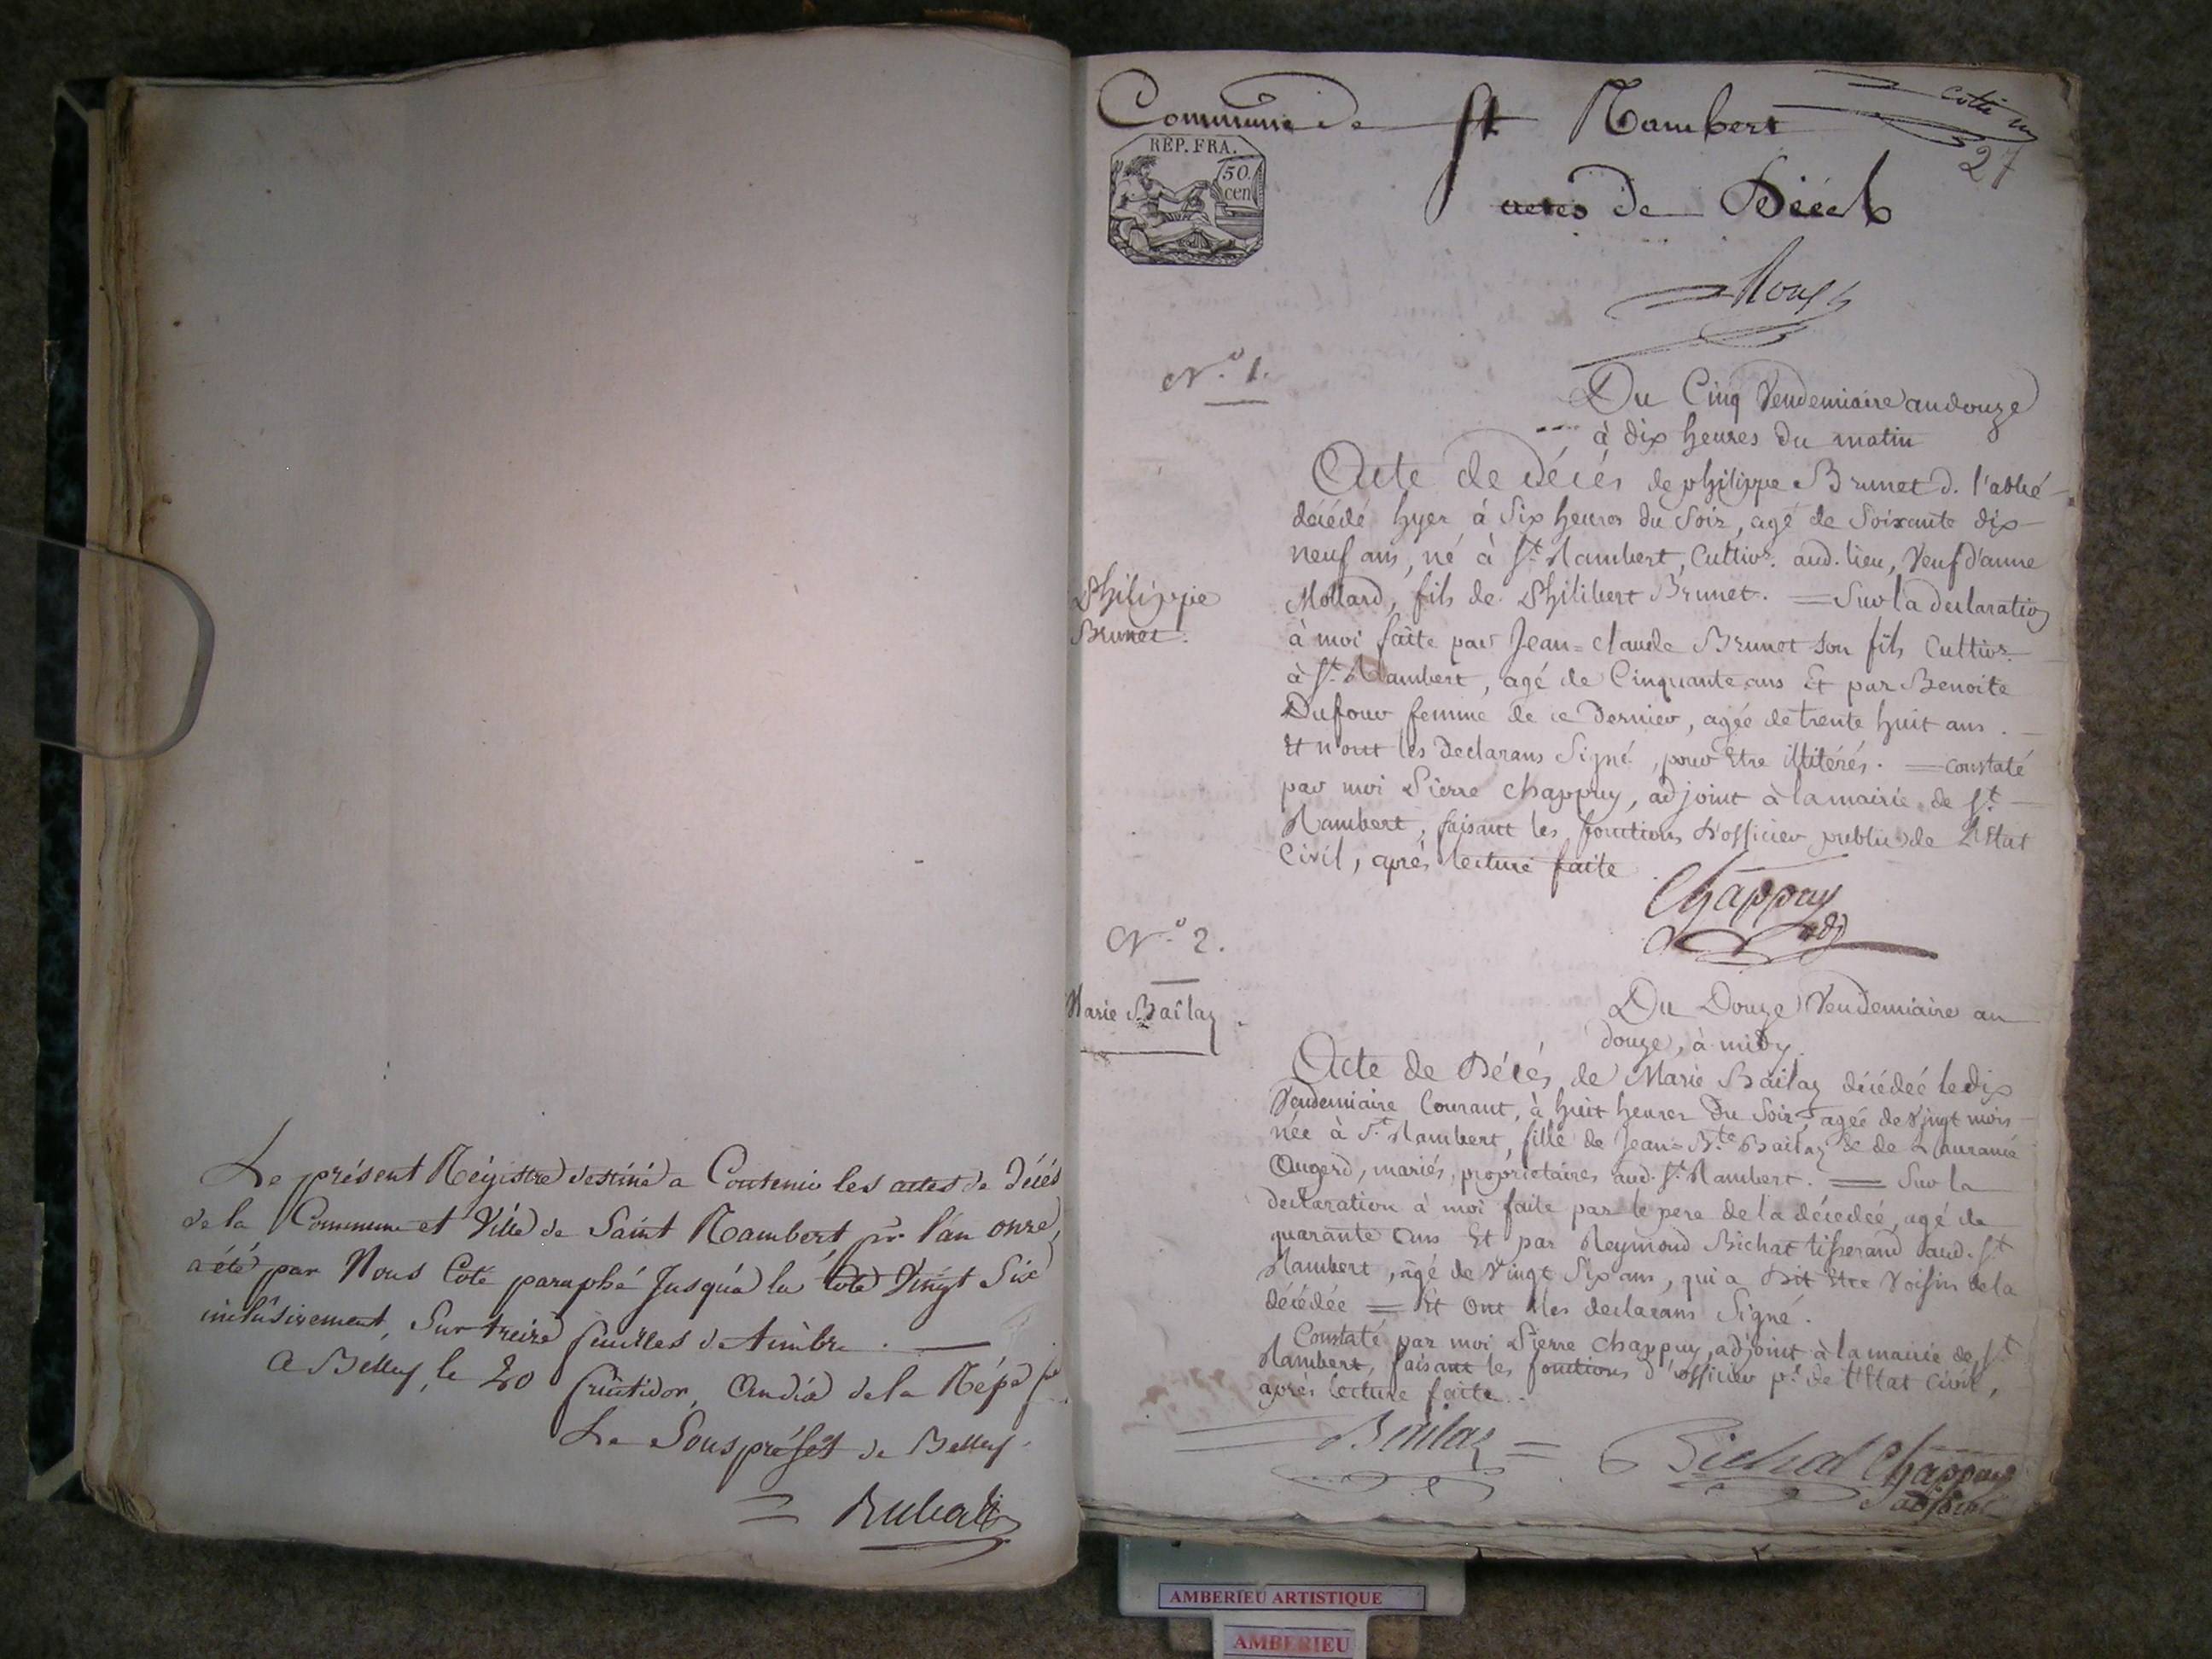 Le présent Régistre destiné a Contenir les actes de Décés
de la Commune et Ville de Saint Rambert pr. l'an onze,
a été par Nous Coté paraphé Jusqu'à la Cote Vingt Six
inclusivement, Sur treize feuilles de timbre. —
A Belley, le 20 fructidor, An dix de la Rép.
Le Sous préfet de Belley.
Rubat
Commune de St Rambert
REP. FRA.
50.
cen
27
actes de Décès
N.º 1.
Du Cinq Vendemiaire an douze
à dix heures du matin
Philippe
Brunet.
Acte de Décés de philippe Brunet d. l'abbé
décédé hyer à Six heures du Soir, agé de Soixante dix
neuf ans, né à St. Rambert, Cultivr. aud. lieu, Veuf d'anne
Mollard, fils de Philibert Brunet. = Sur la declaration
à moi faite par Jean=claude Brunet son fils Cultivr.
à St. Rambert, agé de Cinquante ans Et par Benoite
Dufour femme de ce Dernier, agée de trente huit ans.
Et n'ont les Declarans Signé, pour Etre illitérés. = constaté
par moi Pierre Chappuy, adjoint à la mairie de St.
Rambert, faisant les fonctions d'officier public de L'Etat
Civil, après lecture faite.
Chappuy
adj
N.º 2.
Marie Bailaz
Du Douze Vendemiaire an
douze, à midy.
Acte de Décés de Marie Bailaz décédeé le dix
Vendemiaire Courant, à huit heures Du Soir, agée de Vingt mois
née à St. Rambert, fille de Jean=Bte Bailaz & de
Augerd, mariés, proprietaires aud. St. Rambert. = Sur la
declaration à moi faite par le pere de la décedeé, agé de
quarante Ans Et par Reymond Bichat tisserand aud. St.
Rambert, agé de Vingt Six ans, qui a Dit Etre Voisin de la
décédée = Et Ont les declarans Signé.
Constaté par moi Pierre Chappuy, adjoint à la mairie de St.
Rambert, faisant les fonctions d'officier p.c de l'Etat Civil,
après lecture faite.
Bailaz = Bichat Chappuy
adjoint
AMBERIEU ARTISTIQUE
AMBERIEU